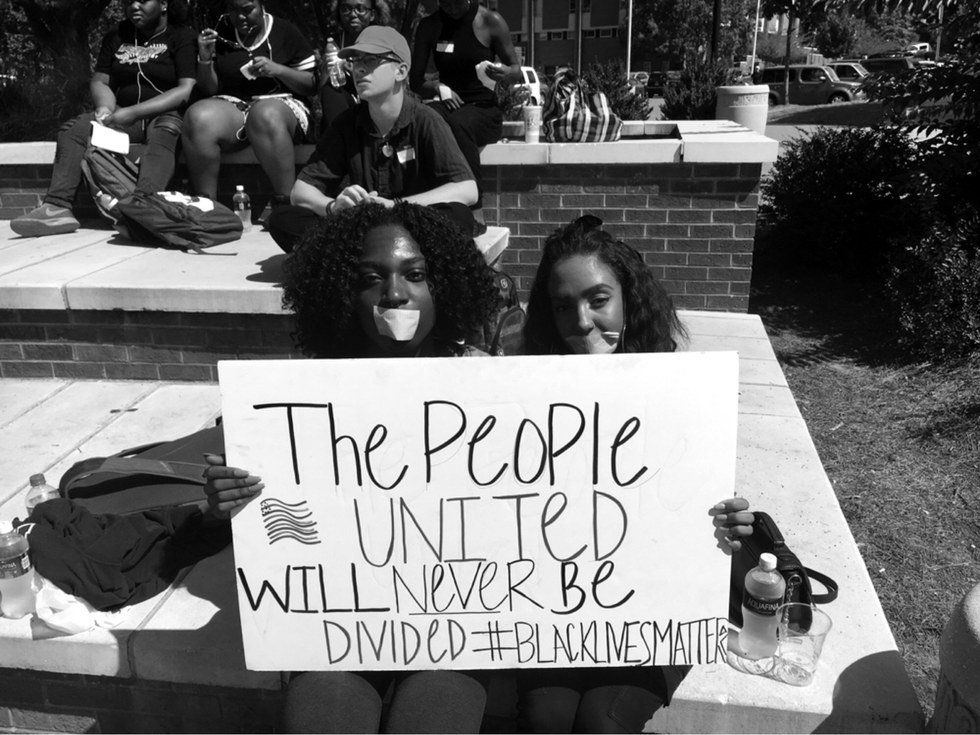 The People
UNITED
WILL NEVER Be
DIVIDED #BLACKLIVESMATTER
AQUAFINA